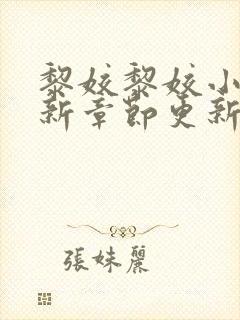 黎姣黎姣小
新章節更新
張妹麗